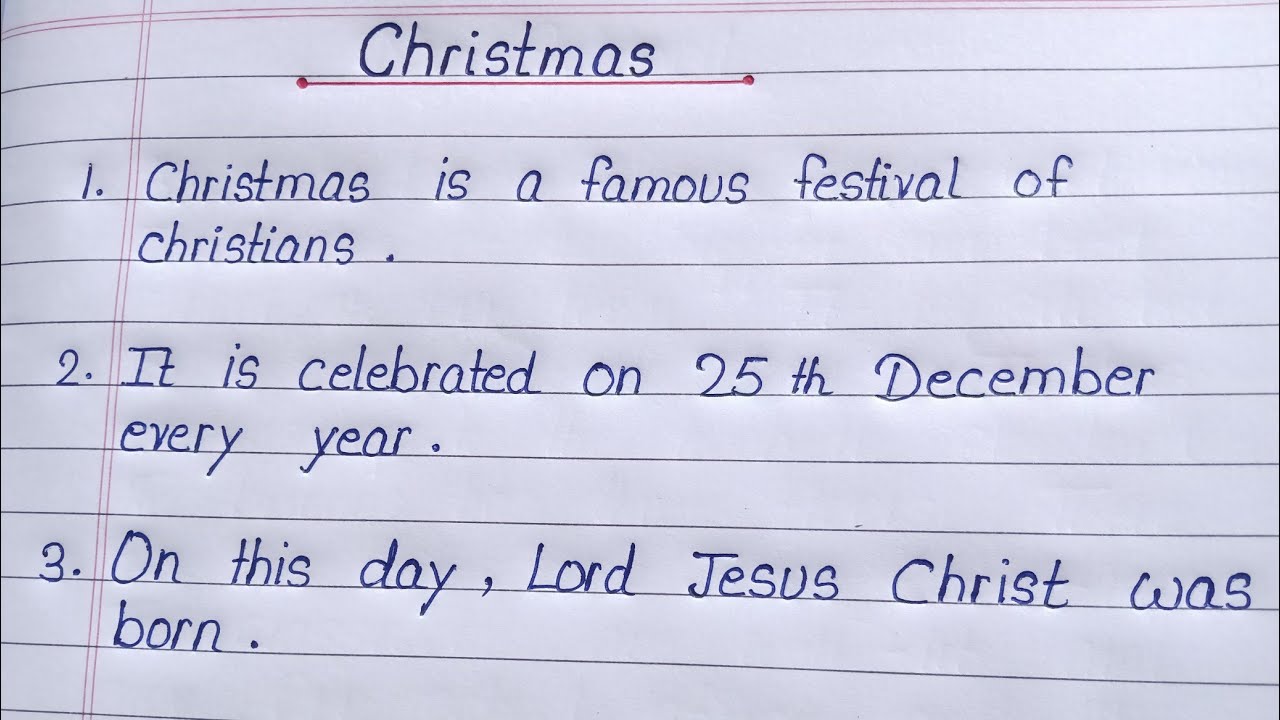 Christmas
1. Christmas is a famous festival of
christians.
2. It is celebrated on 25th December
every year.
3. On this day, Lord Jesus Christ was
born.